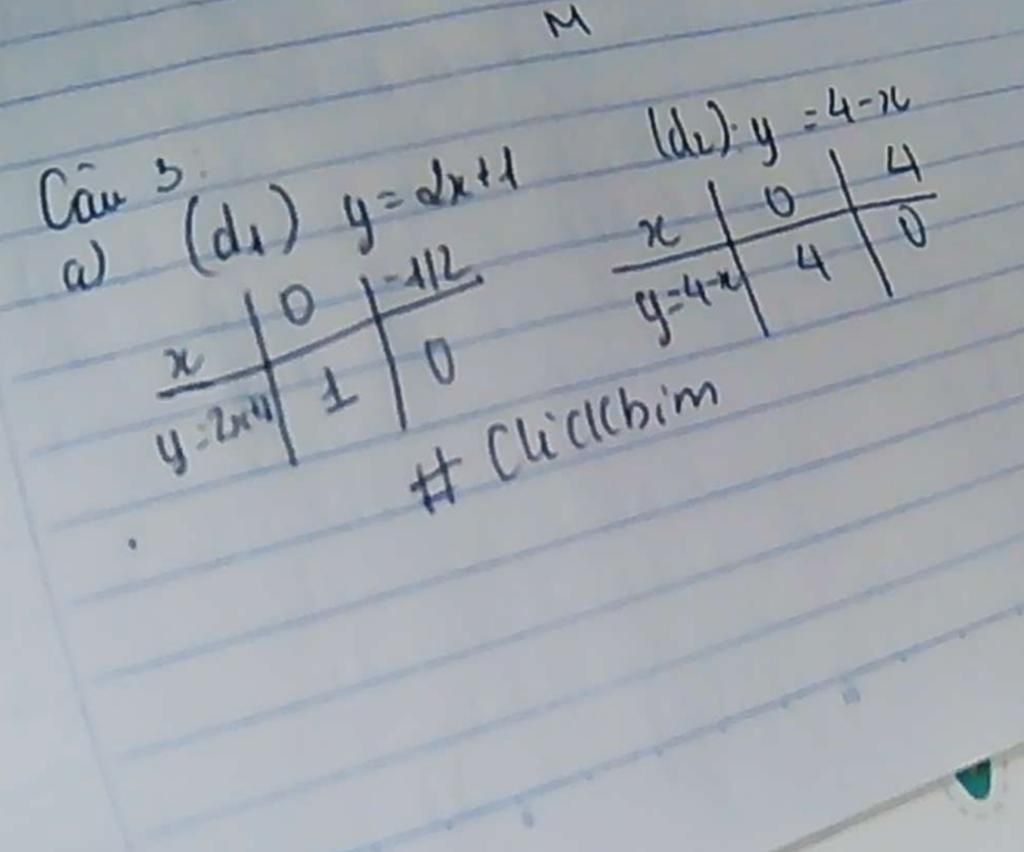 M
Câu 3.
a) (d1) y = 2x+1
x | 0 | -1/2
y=2x+1 | 1 | 0
(d2): y = 4-x
x | 0 | 4
y=4-x | 4 | 0
# Clickbim